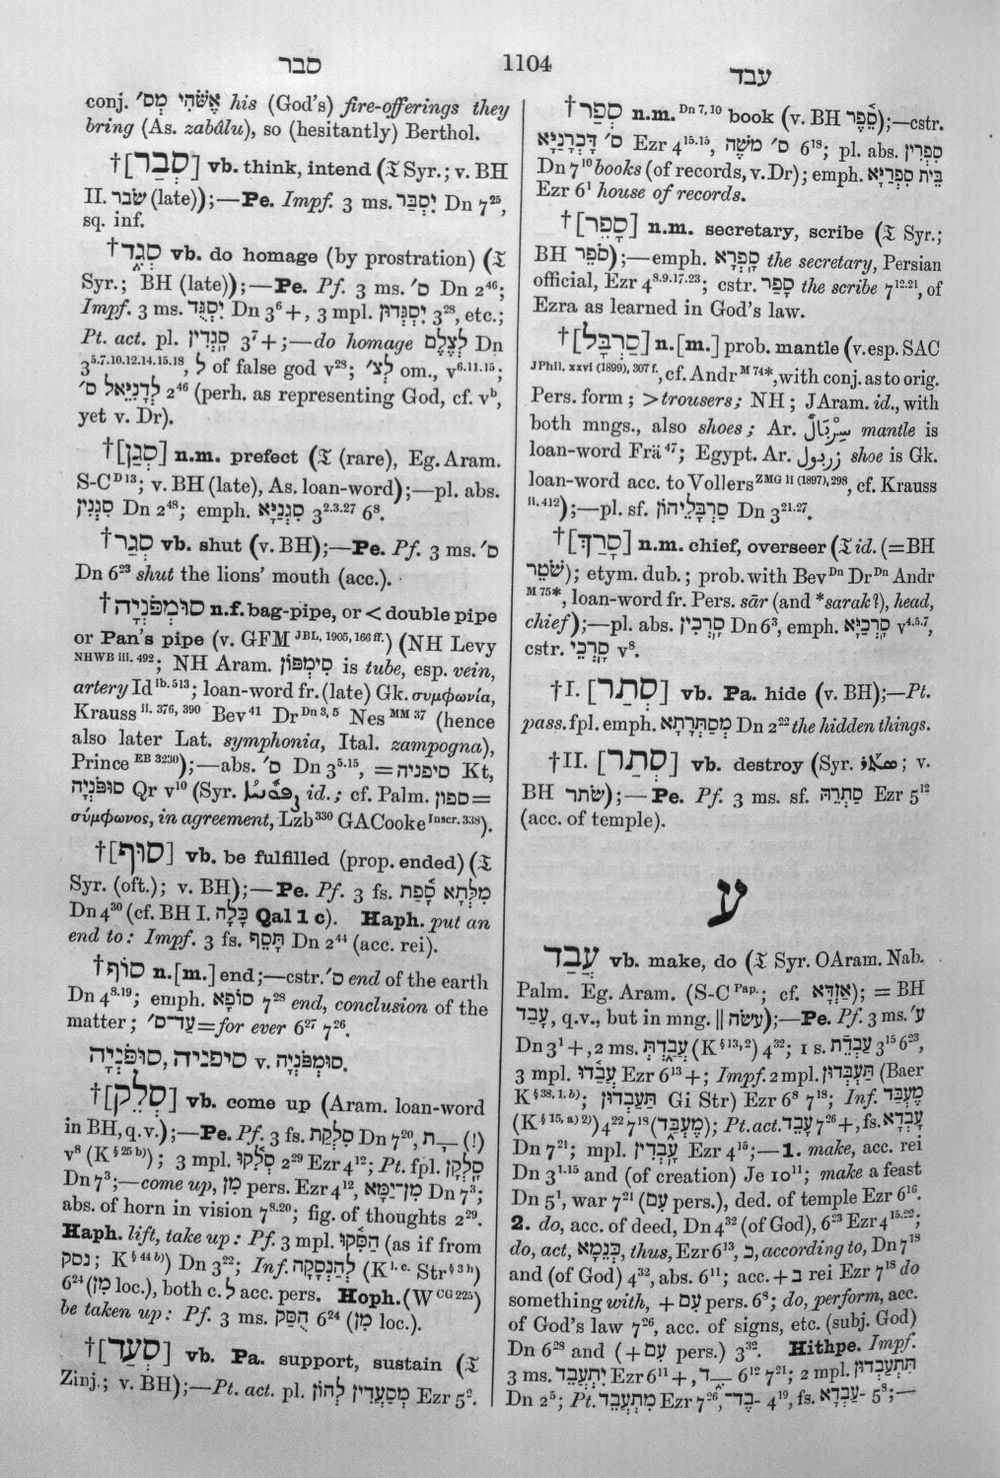 סבר
1104
עבד
conj. אֶשֹּׁהִי מְסַ׳ his (God's) fire-offerings they
bring (As. zabâlu), so (hesitantly) Berthol.
†[סְבַר] vb. think, intend (𝔗 Syr.; v. BH
II. שׂבר (late));—Pe. Impf. 3 ms. יִסְבַּר Dn 7²⁵,
sq. inf.
†סְגִד vb. do homage (by prostration) (𝔗
Syr.; BH (late));—Pe. Pf. 3 ms. ס׳ Dn 2⁴⁶;
Impf. 3 ms. יִסְגֻּד Dn 3⁶ +, 3 mpl. יִסְגְּדוּן 3²⁸, etc.;
Pt. act. pl. סָֽגְדִין 3⁷ +;—do homage לְצֶלֶם Dn
3⁵·⁷·¹⁰·¹²·¹⁴·¹⁵·¹⁸, לְ of false god v²⁸; לְצ׳ om., v⁶·¹¹·¹⁵;
לְדָנִיֵּאל ס׳ 2⁴⁶ (perh. as representing God, cf. vᵇ,
yet v. Dr).
†[סְגַן] n.m. prefect (𝔗 (rare), Eg. Aram.
S-C ᴰ ¹³; v. BH (late), As. loan-word);—pl. abs.
סִגְנִין Dn 2⁴⁸; emph. סִגְנַיָּא 3²·³·²⁷ 6⁸.
†סְגַר vb. shut (v. BH);—Pe. Pf. 3 ms. ס׳
Dn 6²³ shut the lions' mouth (acc.).
†סוּמְפֹּנְיָה n.f. bag-pipe, or < double pipe
or Pan's pipe (v. GFM JBL, 1905, 166 ff.) (NH Levy
NHWB iii. 492; NH Aram. סִימְפּוֹן is tube, esp. vein,
artery Id ib. 513; loan-word fr. (late) Gk. συμφωνία,
Krauss ii. 376, 390 Bev⁴¹ Dr Dn 3, 5 Nes MM 37 (hence
also later Lat. symphonia, Ital. zampogna),
Prince EB 3230);—abs. ס׳ Dn 3⁵·¹⁵, = סיפניה Kt,
סוּפֹּנְיָה Qr v¹⁰ (Syr. id.; cf. Palm. ספון=
σύμφωνος, in agreement, Lzb³³⁰ GACooke Inscr. 338).
†[סוּף] vb. be fulfilled (prop. ended) (𝔗
Syr. (oft.); v. BH);—Pe. Pf. 3 fs. מִלְּתָא סָ֫פַת
Dn 4³⁰ (cf. BH I. כָּלָה Qal 1 c). Haph. put an
end to: Impf. 3 fs. תָּסֵף Dn 2⁴⁴ (acc. rei).
†סוֹף n.[m.] end;—cstr. ס׳ end of the earth
Dn 4⁸·¹⁹; emph. סוֹפָא 7²⁸ end, conclusion of the
matter; עַד־ס׳=for ever 6²⁷ 7²⁶.
סוּפֹּנְיָה, סיפניה v. סוּמְפֹּנְיָה.
†[סְלֵק] vb. come up (Aram. loan-word
in BH, q.v.);—Pe. Pf. 3 fs. סִלְקַת Dn 7²⁰, ־ָת (!)
v⁸ (K § 25 b)); 3 mpl. סְלִ֫קוּ 2²⁹ Ezr 4¹²; Pt. fpl. סָֽלְקָן
Dn 7³;—come up, מִן pers. Ezr 4¹², מִן־יַמָּא Dn 7³;
abs. of horn in vision 7⁸·²⁰; fig. of thoughts 2²⁹.
Haph. lift, take up: Pf. 3 mpl. הַסִּ֫קוּ (as if from
נסק; K § 44 b)) Dn 3²²; Inf. לְהַנְסָקָה (K l. c. Str § 3 h)
6²⁴ (מִן loc.), both c. לְ acc. pers. Hoph. (W CG 225)
be taken up: Pf. 3 ms. הֻסַּק 6²⁴ (מִן loc.).
†[סְעַד] vb. Pa. support, sustain (𝔗
Zinj.; v. BH);—Pt. act. pl. מְסַעֲדִין לְהוֹן Ezr 5².
†סְפַר n.m. Dn 7, 10 book (v. BH סֵ֫פֶר);—cstr.
ס׳ דָּכְרָנַיָּא Ezr 4¹⁵·¹⁵, ס׳ משֶׁה 6¹⁸; pl. abs. סִפְרִין
Dn 7¹⁰ books (of records, v. Dr); emph. בֵּית סִפְרַיָּא
Ezr 6¹ house of records.
†[סָפֵר] n.m. secretary, scribe (𝔗 Syr.;
BH סֹפֵר);—emph. סָֽפְרָא the secretary, Persian
official, Ezr 4⁸·⁹·¹⁷·²³; cstr. סָפַר the scribe 7¹²·²¹, of
Ezra as learned in God's law.
†[סַרְבָּל] n.[m.] prob. mantle (v. esp. SAC
JPhil. xxvi (1899), 307 f., cf. Andr M 74*, with conj. as to orig.
Pers. form; > trousers; NH; JAram. id., with
both mngs., also shoes; Ar. سِرْبَالٌ mantle is
loan-word Frä⁴⁷; Egypt. Ar. زربول shoe is Gk.
loan-word acc. to Vollers ZMG li (1897), 298, cf. Krauss
ii. 412);—pl. sf. סַרְבָּלֵיהוֹן Dn 3²¹·²⁷.
†[סָרַךְ] n.m. chief, overseer (𝔗 id. (=BH
שֹׁטֵר); etym. dub.; prob. with Bev Dn Dr Dn Andr
M 75*, loan-word fr. Pers. sār (and *sarak?), head,
chief);—pl. abs. סָֽרְכִין Dn 6³, emph. סָֽרְכַיָּא v⁴·⁵·⁷,
cstr. סָֽרְכֵי v⁸.
†I. [סְתַר] vb. Pa. hide (v. BH);—Pt.
pass. fpl. emph. מְסַתְּרָתָא Dn 2²² the hidden things.
†II. [סְתַר] vb. destroy (Syr. ܣܬܪ; v.
BH שׂתר);—Pe. Pf. 3 ms. sf. סַתְרֵהּ Ezr 5¹²
(acc. of temple).
ע
עֲבַד vb. make, do (𝔗 Syr. OAram. Nab.
Palm. Eg. Aram. (S-C Pap.; cf. אַזְדָּא); = BH
עָבַד, q.v., but in mng. ‖ עשׂה);—Pe. Pf. 3 ms. ע׳
Dn 3¹ +, 2 ms. עֲבַדְתְּ (K § 13, 2) 4³²; 1 s. עַבְדֵת 3¹⁵ 6²³,
3 mpl. עֲבַ֫דוּ Ezr 6¹³ +; Impf. 2 mpl. תַּעַבְדוּן (Baer
K § 38, 1. b); תַּעַבְדוּן Gi Str) Ezr 6⁸ 7¹⁸; Inf. מֶעְבַּד
(K § 15, a) 2)) 4²² 7¹⁸ (מֶעְבַּד); Pt. act. עָבֵד 7²⁶ +, fs. עָבְדָא
Dn 7²¹; mpl. עָֽבְדִין Ezr 4¹⁵;—1. make, acc. rei
Dn 3¹·¹⁵ and (of creation) Je 10¹¹; make a feast
Dn 5¹, war 7²¹ (עִם pers.), ded. of temple Ezr 6¹⁶.
2. do, acc. of deed, Dn 4³² (of God), 6²³ Ezr 4¹⁵·²²;
do, act, כְּנֵמָא, thus, Ezr 6¹³, כְּ, according to, Dn 7¹⁸
and (of God) 4³², abs. 6¹¹; acc. + בְּ rei Ezr 7¹⁸ do
something with, + עִם pers. 6⁸; do, perform, acc.
of God's law 7²⁶, acc. of signs, etc. (subj. God)
Dn 6²⁸ and (+ עִם pers.) 3³². Hithpe. Impf.
3 ms. יִתְעֲבֵד Ezr 6¹¹ +, ־ֶד 6¹² 7²¹; 2 mpl. תִּתְעַבְדוּן
Dn 2⁵; Pt. מִתְעֲבֵד Ezr 7²⁶, ־בֶד־ 4¹⁹, fs. ־עַבְדָא 5⁸;—